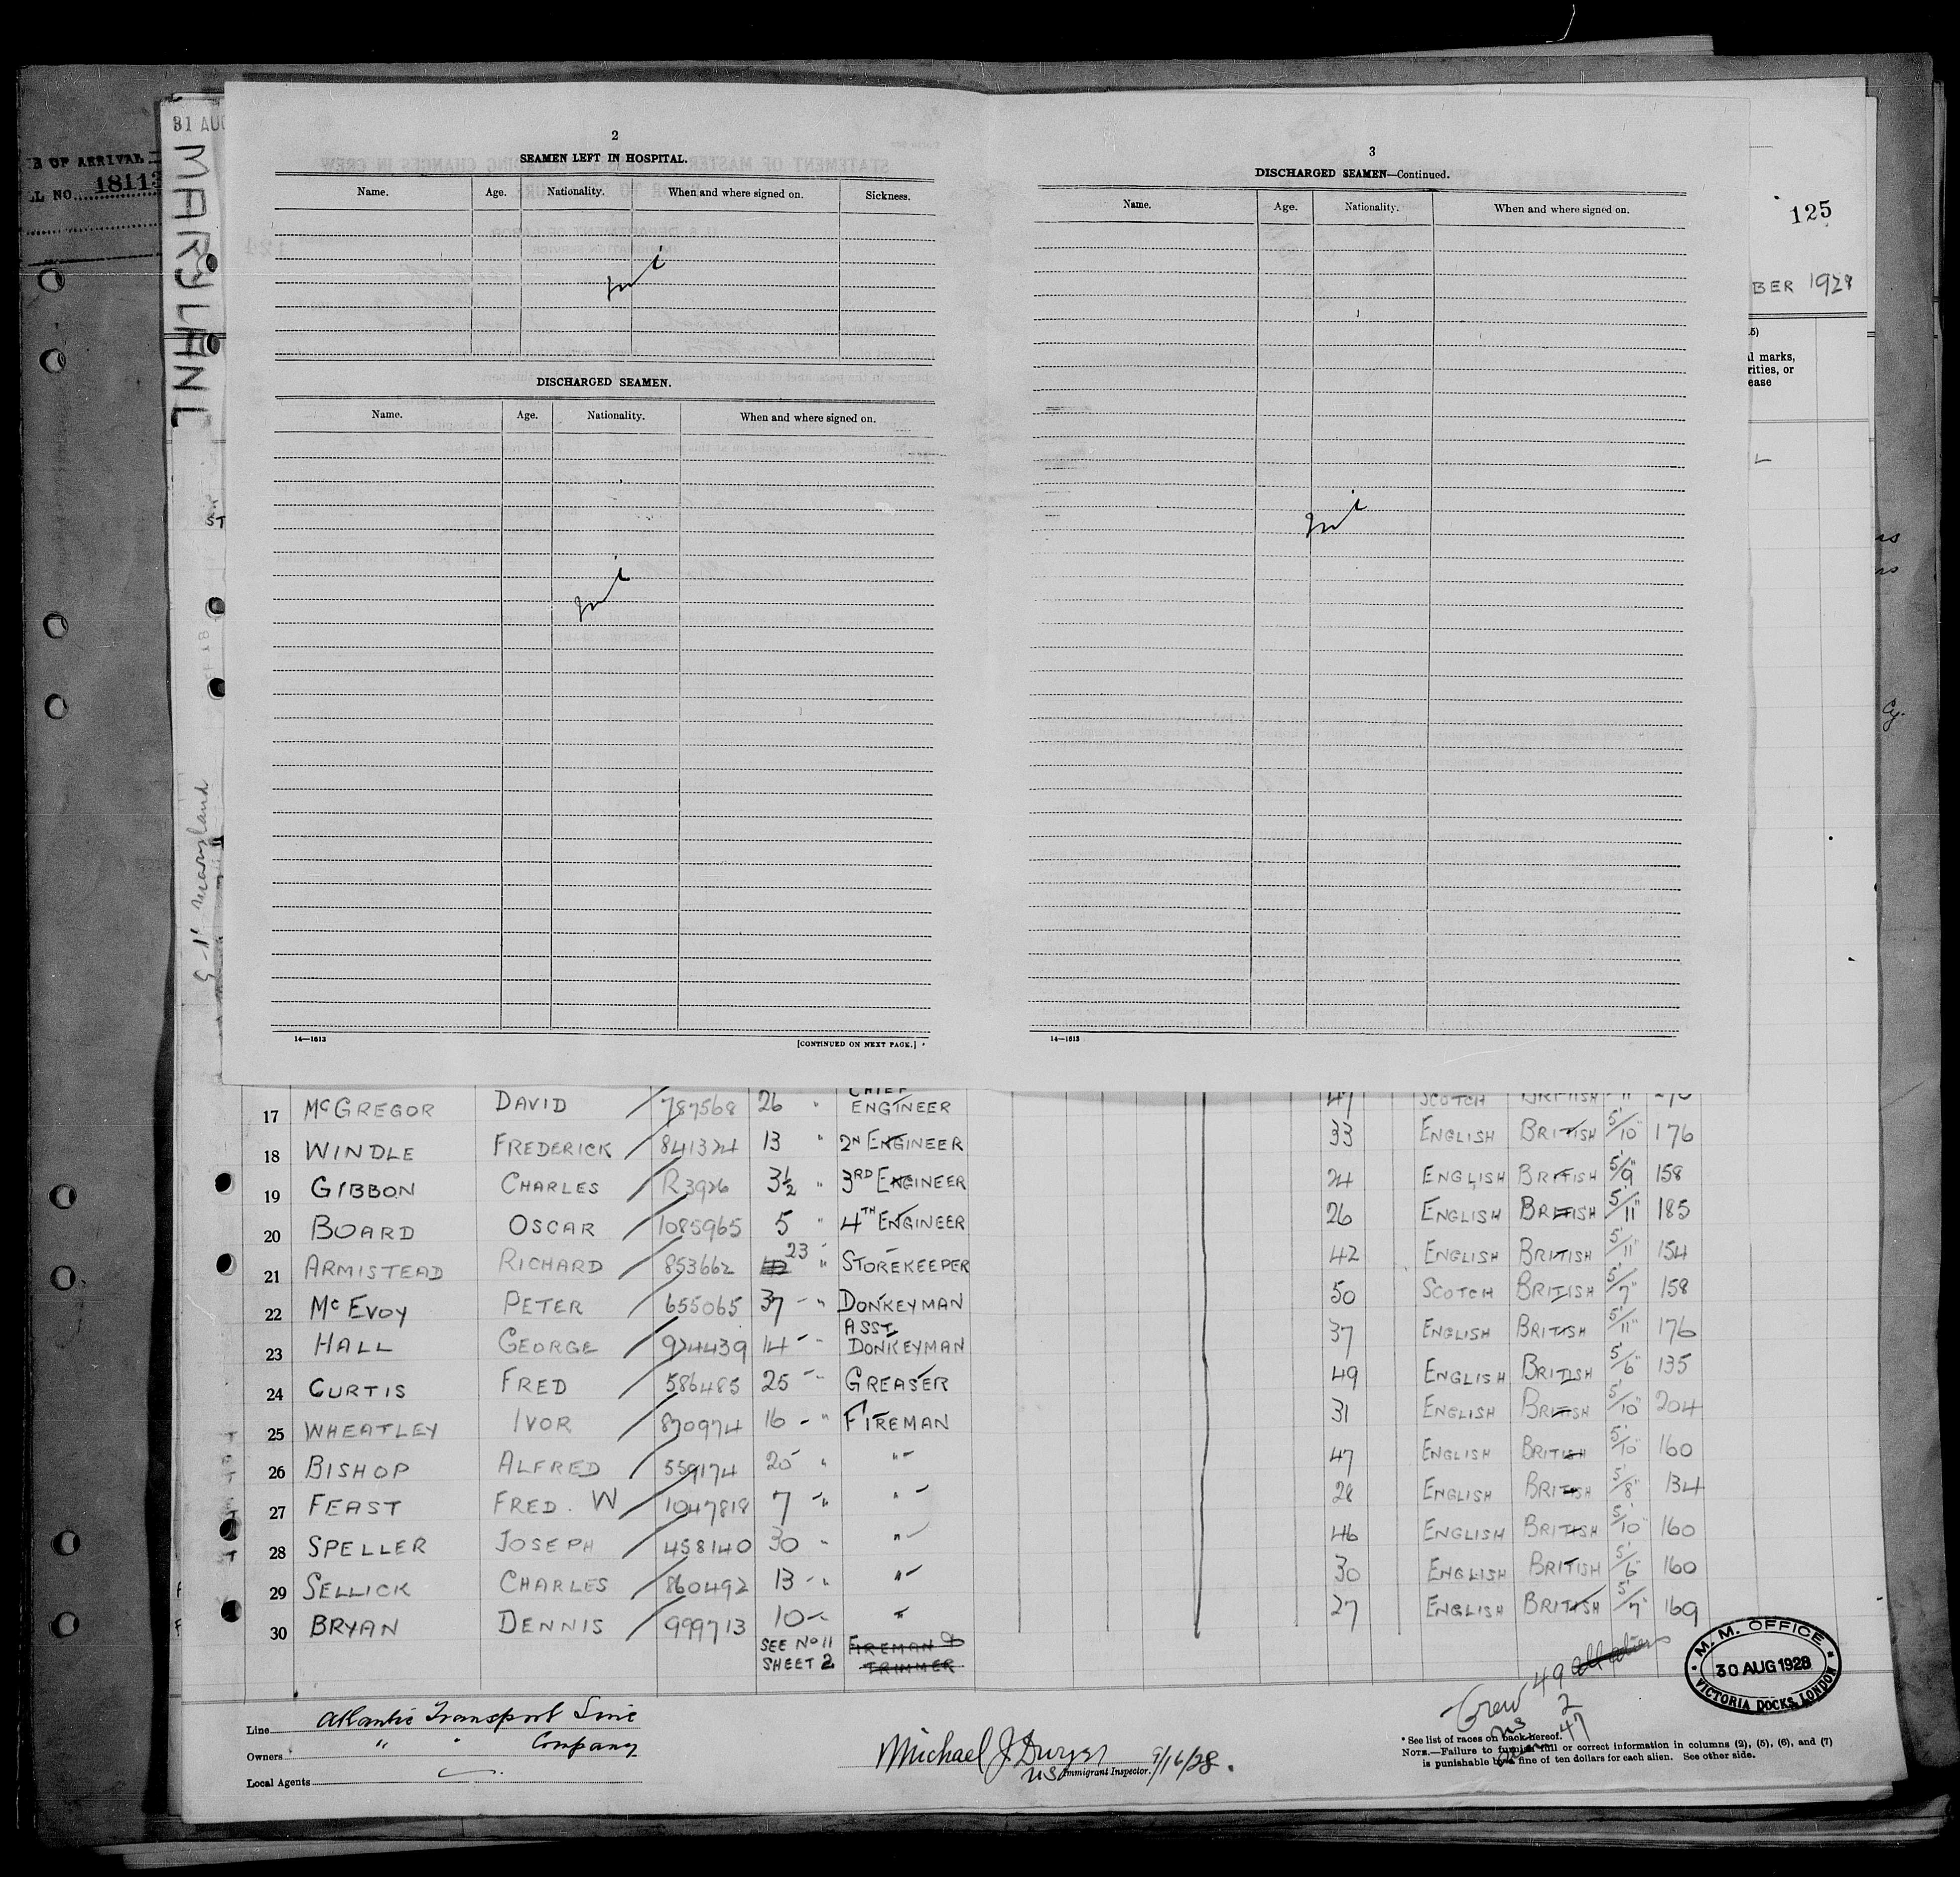 31 AUG
E OF ARRIVAL
LL NO. 18113
MARYLAND
S-1' Maryland
125
BER 1928
l marks,
rities, or
ease
2
SEAMEN LEFT IN HOSPITAL.
Name. Age. Nationality. When and where signed on. Sickness.
DISCHARGED SEAMEN.
Name. Age. Nationality. When and where signed on.
14—1613 [CONTINUED ON NEXT PAGE.]
3
DISCHARGED SEAMEN—Continued.
Name. Age. Nationality. When and where signed on.
14—1613
17 McGREGOR DAVID 787568 26 " CHIEF ENGINEER 47 SCOTCH BRITISH
18 WINDLE FREDERICK 841324 13 " 2N ENGINEER 33 ENGLISH BRITISH 5'/10" 176
19 GIBBON CHARLES R3926 3½ " 3RD ENGINEER 24 ENGLISH BRITISH 5'/9" 158
20 BOARD OSCAR 1085965 5 " 4TH ENGINEER 26 ENGLISH BRITISH 5'/11" 185
21 ARMISTEAD RICHARD 853662 23 " STOREKEEPER 42 ENGLISH BRITISH 5'/11" 154
22 McEVOY PETER 655065 37 " DONKEYMAN 50 SCOTCH BRITISH 5'/7" 158
23 HALL GEORGE 924439 14 " ASST. DONKEYMAN 37 ENGLISH BRITISH 5'/11" 176
24 CURTIS FRED 586485 25 " GREASER 49 ENGLISH BRITISH 5'/6" 135
25 WHEATLEY IVOR 870974 16 " FIREMAN 31 ENGLISH BRITISH 5'/10" 204
26 BISHOP ALFRED 559174 20 " " 47 ENGLISH BRITISH 5'/10" 160
27 FEAST FRED. W 1047818 7 " " 28 ENGLISH BRITISH 5'/8" 134
28 SPELLER JOSEPH 458140 30 " " 46 ENGLISH BRITISH 5'/10" 160
29 SELLICK CHARLES 860492 13 " " 30 ENGLISH BRITISH 5'/6" 160
30 BRYAN DENNIS 999713 10 " 27 ENGLISH BRITISH 5'/7" 169
SEE No 11 FIREMAN &
SHEET 2 TRIMMER
Crew 49
2
47
M. M. OFFICE
30 AUG 1928
VICTORIA DOCKS, LONDON
Line Atlantic Transport Line
Owners " " Company
Local Agents
Michael J Dwyer 9/16/28.
US Immigrant Inspector.
* See list of races on back hereof.
NOTE.—Failure to furnish full or correct information in columns (2), (5), (6), and (7)
is punishable by a fine of ten dollars for each alien. See other side.